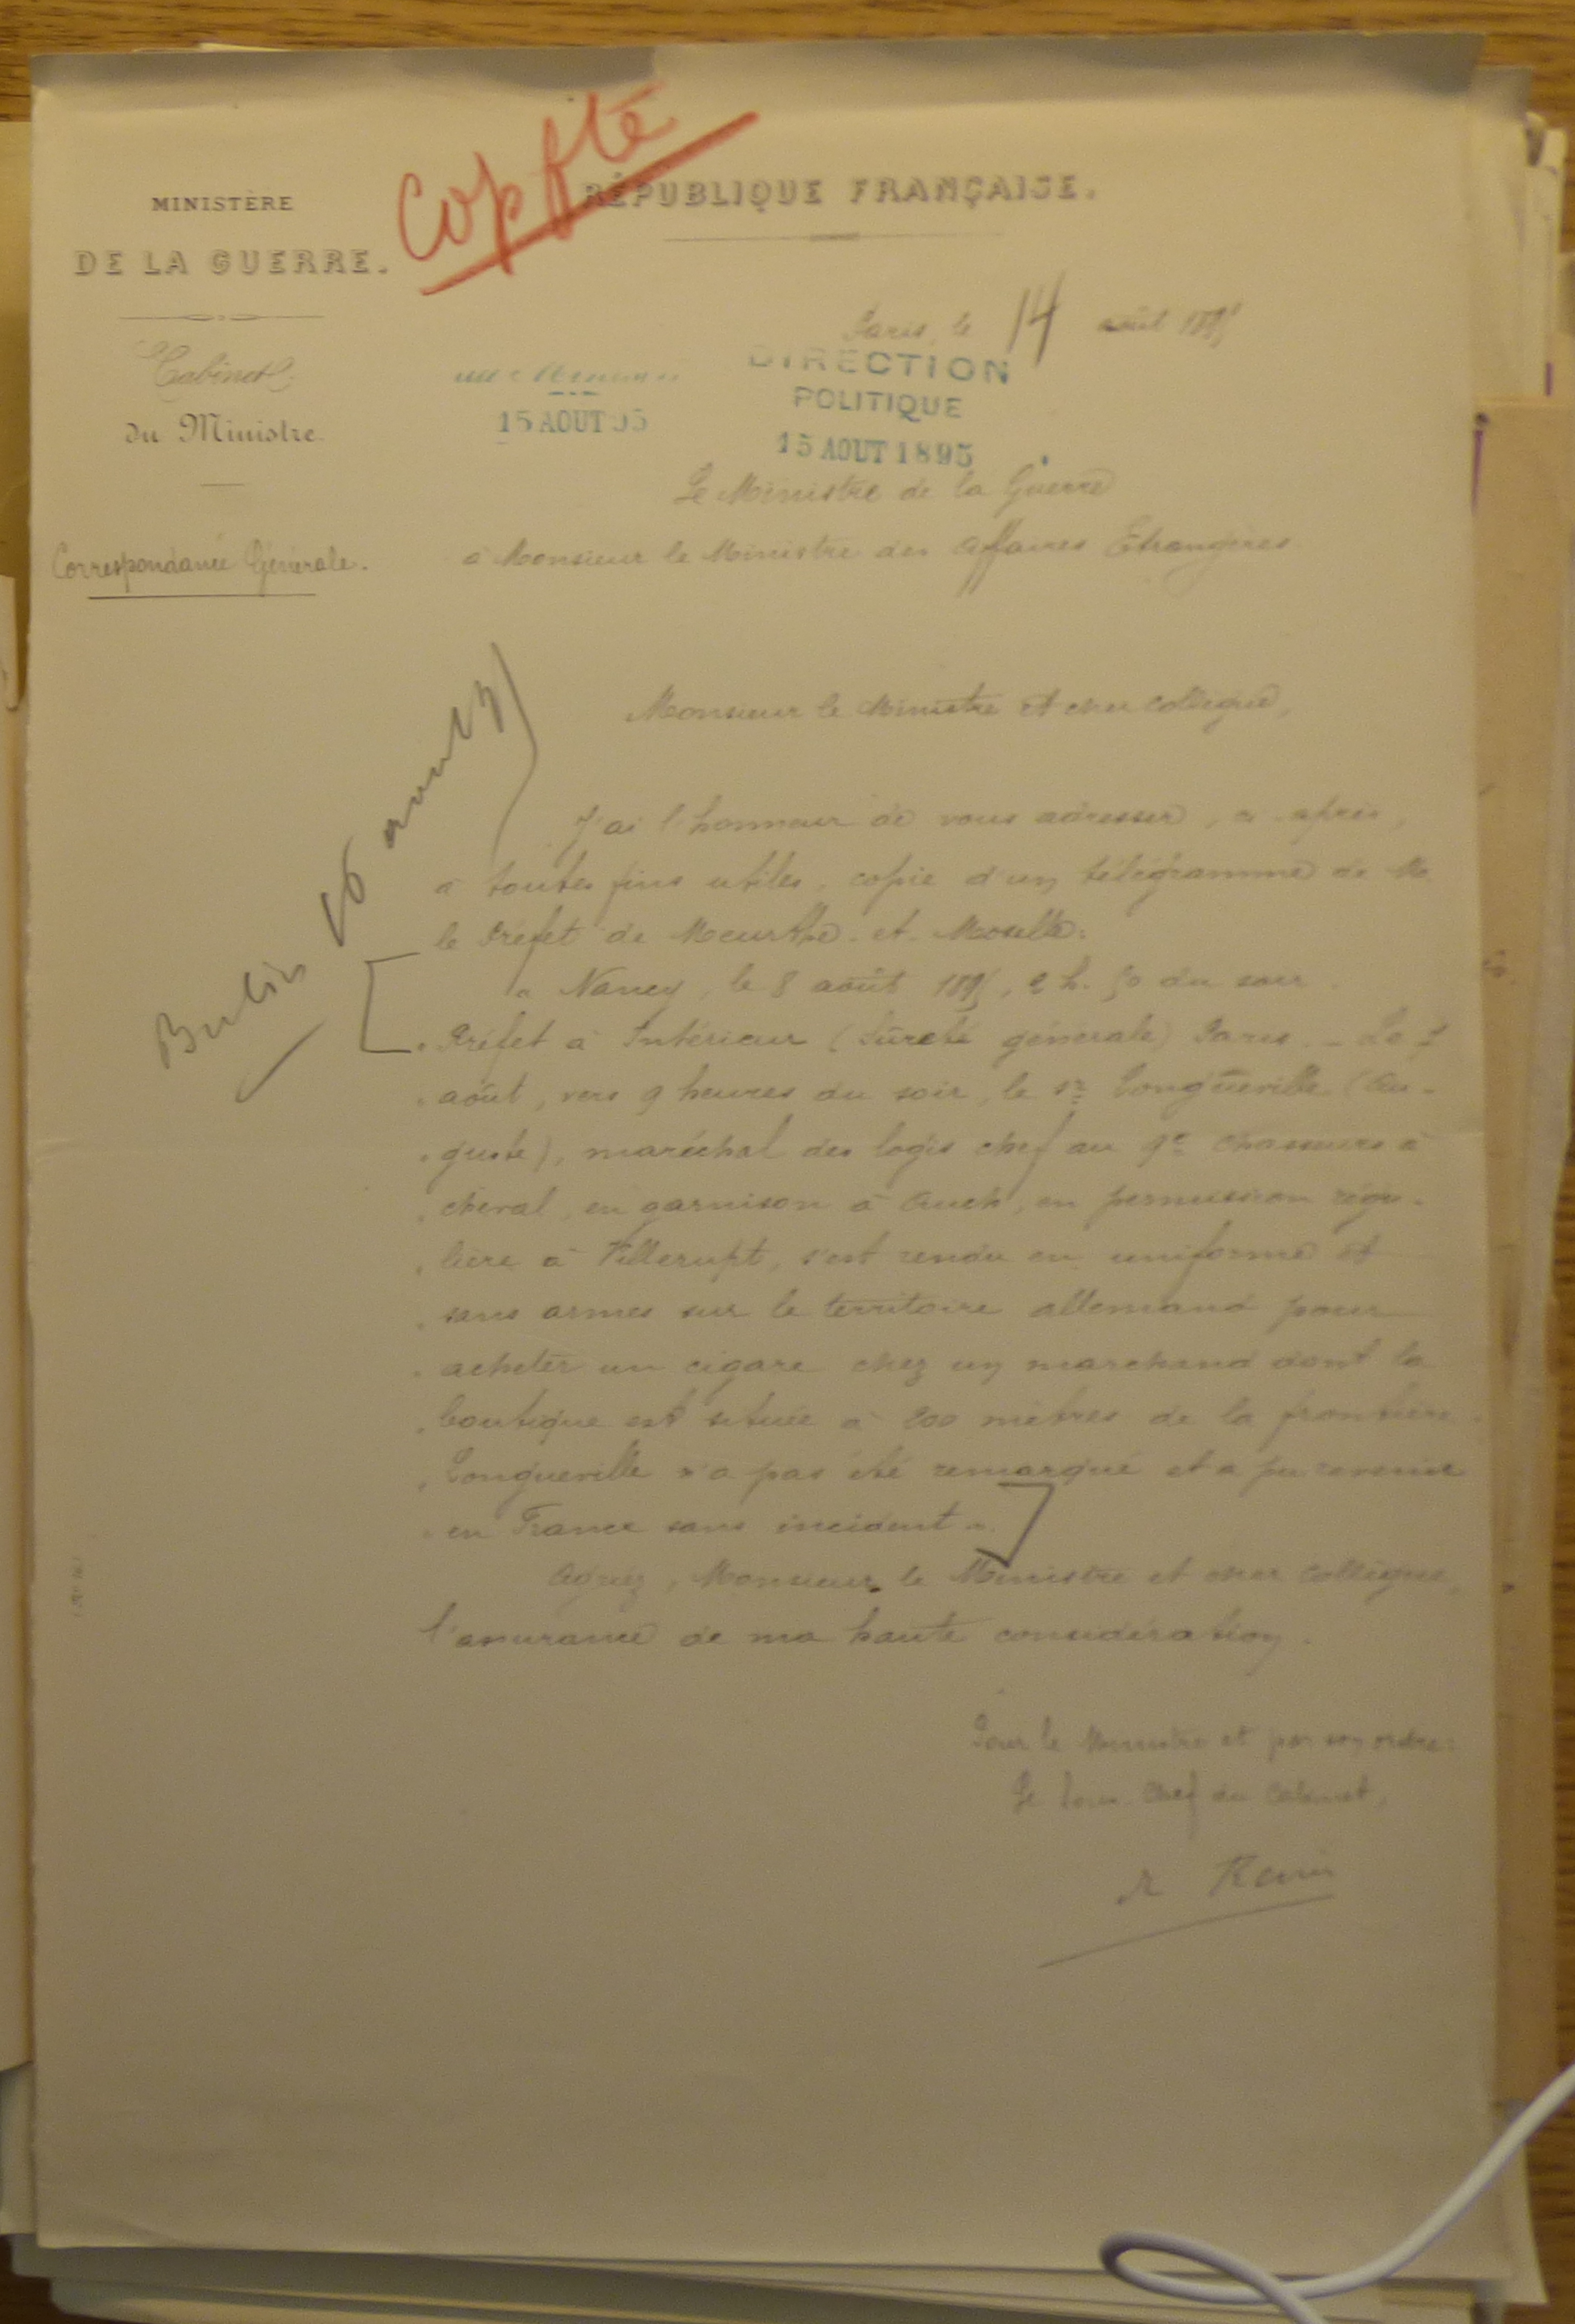 Copié
MINISTÈRE
DE LA GUERRE.
Cabinet
du Ministre.
Correspondance Générale.
RÉPUBLIQUE FRANÇAISE.
Paris, le 14 août 1895
15 AOUT 95
DIRECTION
POLITIQUE
15 AOUT 1895
Le Ministre de la Guerre
à Monsieur le Ministre des Affaires Etrangères
Berlin 16 août 95
Monsieur le Ministre et cher collègue,
J'ai l'honneur de vous adresser, ci-après,
à toutes fins utiles, copie d'un télégramme de M.
le Préfet de Meurthe-et-Moselle:
" Nancy, le 8 août 1895, 2 h. 50 du soir.
" Préfet à Intérieur (Sûreté générale) Paris. _ Le 7
" août, vers 9 heures du soir, le Sr Longueville (Au-
" guste), maréchal des logis chef au 9e chasseurs à
" cheval, en garnison à Auch, en permission régu-
" lière à Villerupt, s'est rendu en uniforme et
" sans armes sur le territoire allemand pour
" acheter un cigare chez un marchand dont la
" boutique est située à 200 mètres de la frontière.
" Longueville n'a pas été remarqué et a pu revenir
" en France sans incident ".
Agréez, Monsieur le Ministre et cher collègue,
l'assurance de ma haute considération.
Pour le Ministre et par son ordre:
Le Sous-Chef du Cabinet,